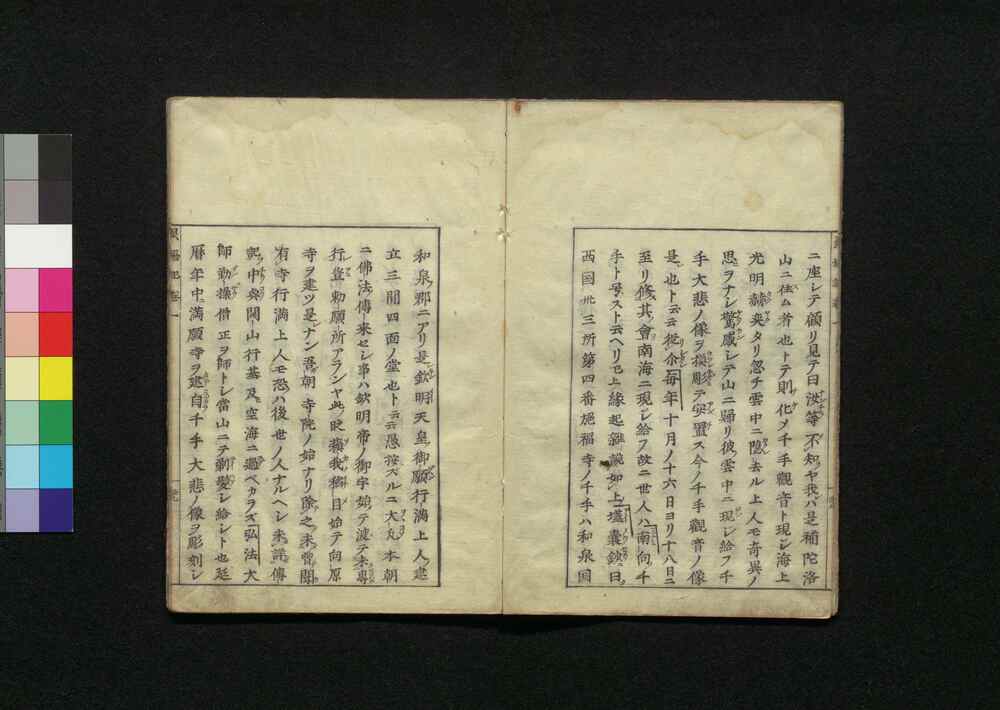 ニ座シテ顧リ見テ曰汝等不知ヤ我ハ是補陀洛
山ニ住ム者也トテ則化メ千手觀音ト現シ海上
光明赫奕タリ忽チ雲中ニ隠去ル上人モ奇異ノ
思ヲナシ驚感シテ山ニ歸リ彼雲中ニ現シ給フ千
手大悲ノ像ヲ摸彫テ安置ス今ノ千手觀音ノ像
是也ト云云從尒毎年十月ノ十六日ヨリ十八日ニ
至リ修其會南海ニ現シ給フ故ニ世人ハ南向千
手ト号スト云ヘリ已上縁起雜説如上壒囊鈔曰
西国卅三所第四番施福寺ノ千手ハ和泉国
和泉郡ニアリ是欽明天皇御願行満上人建
立三間四面ノ堂也ト云云愚按スルニ大凡本朝
ニ佛法傳来セシ事ハ欽明帝ノ御宇始テ渡テ未專
行豈勅願所アランヤ此時蘇我稲目始テ向原
寺ヲ建ツ是ナン吾朝寺院ノ始ナリ除之未曽聞
有寺行満上人モ恐ハ後世ノ人ナルヘシ未詳傳
記中奥開山行基及空海ニ過ベカラズ弘法大
師勤操僧正ヲ師トシ當山ニテ剃髪シ給シト也延
暦年中満願寺ヲ建自千手大悲ノ像ヲ彫刻シ